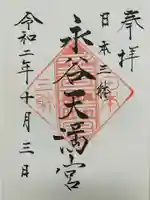 奉拝
日本三躰
永谷天満宮
令和二年十月三日